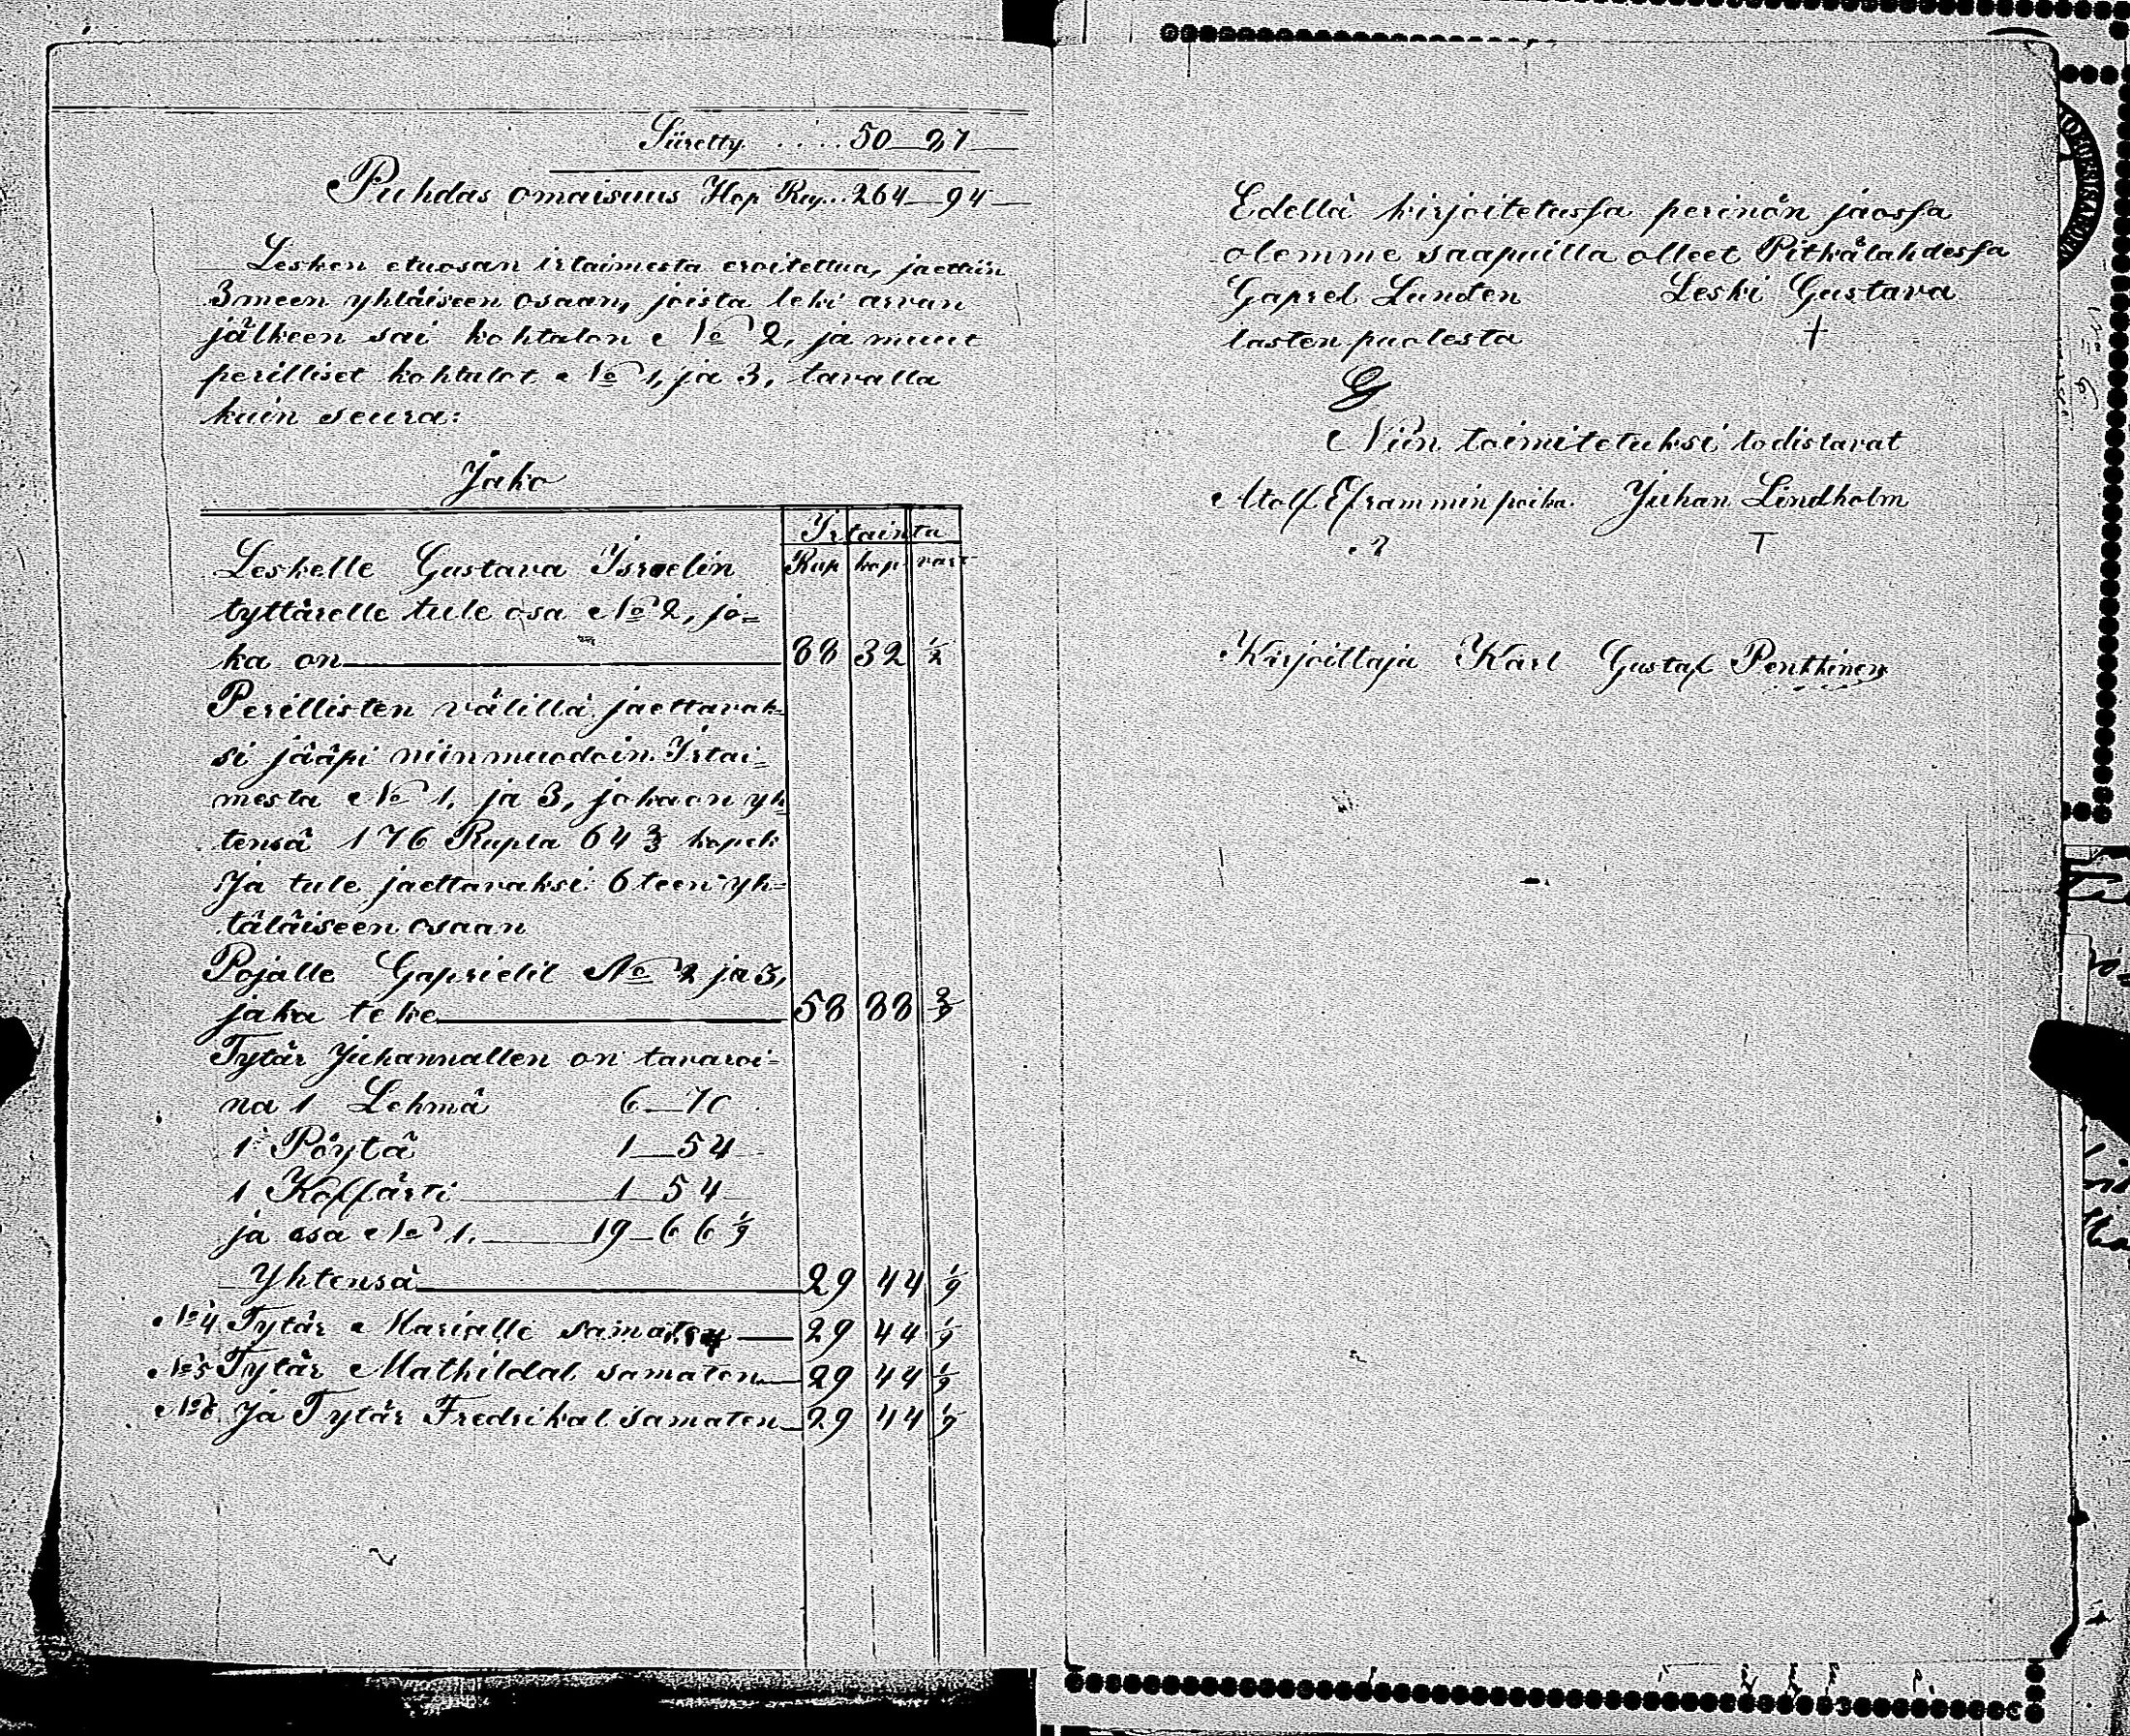 Siiretty. . . . . 50–87–
Puhdas omaisuus Hop Rup... 264–94–
Lesken etuosan irtaimesta eroitettua, jaettiin
3meen yhtäiseen osaan, joista leki arvan
jälkeen sai kohtalon No 2, ja muut
perilliset kohtalot No 1, ja 3, tavalla
kuin seura:
Jako
Irtainta
Rup kop
Leskelle Gustava Israelin
tyttärelle tule osa No 2, jo=
ka on 88 32 ½
Perillisten välillä jaettavak=
si jääpi niinmuodoin Irtai=
mesta No 1, ja 3, joka on yh
tensä 176 Rupla 64 ⅔ kopek
Ja tule jaettavaksi 6teen yh=
täläiseen osaan
Pojalle Gaprielil No 2 ja 3,
joka teke 58 88 2/9
Tytär Juhannallen on tavaroi=
na 1 Lehmä 6–70
1 Pöytä 1–54
1 Koffärti 1 54
ja osa No 1. 19–66 1/9
Yhtensä 29 44 1/9
No 4 Tytär Marialle samaten 29 44 1/9
No 5 Tytär Mathildal samaten 29 44 1/9
No 6 Ja Tytär Fredrikal samaten 29 44 1/9
Edellä kirjoitetussa perinön jaossa
olemme saapuilla olleet Pitkälahdessa
Gaprel Lunden Leski Gustava
lasten puolesta +
G
Niin toimitetuksi todistavat
Atolf Eframmin poika. Juhan Lindholm
T
Kirjoittaja Karl Gustaf Penttinen